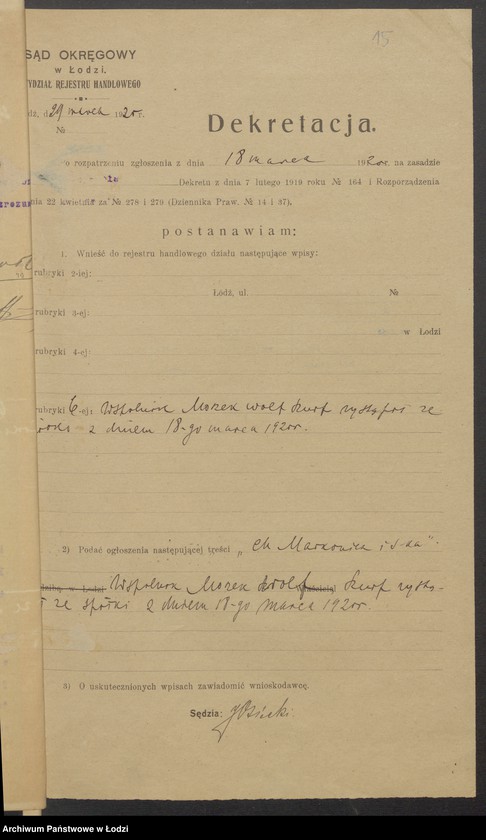 15
SĄD OKRĘGOWY
w Łodzi.
WYDZIAŁ REJESTRU HANDLOWEGO
dz, d. 29 marca 1920 r.
№
Dekretacja.
o rozpatrzeniu zgłoszenia z dnia 18 marca 1920 r. na zasadzie
Dekretu z dnia 7 lutego 1919 roku № 164 i Rozporządzenia
nia 22 kwietnia za № 278 i 279 (Dziennika Praw. № 14 i 37),
postanawiam:
1. Wnieść do rejestru handlowego działu następujące wpisy:
rubryki 2-iej:
Łódź, ul. №
rubryki 3-ej:
w Łodzi
rubryki 4-ej:
rubryki 6-ej: Wspólnik Mozek Wolf Kurc wystąpił ze
z dniem 18-go marca 1920 r.
2) Podać ogłoszenia następującej treści „Ch. Markowicz i S-ka"
w Łodzi Wspólnik Mozek Wolf Kurc wystą-
ze spółki z dniem 18-go marca 1920 r.
3) O uskutecznionych wpisach zawiadomić wnioskodawcę.
Sędzia:
Archiwum Państwowe w Łodzi